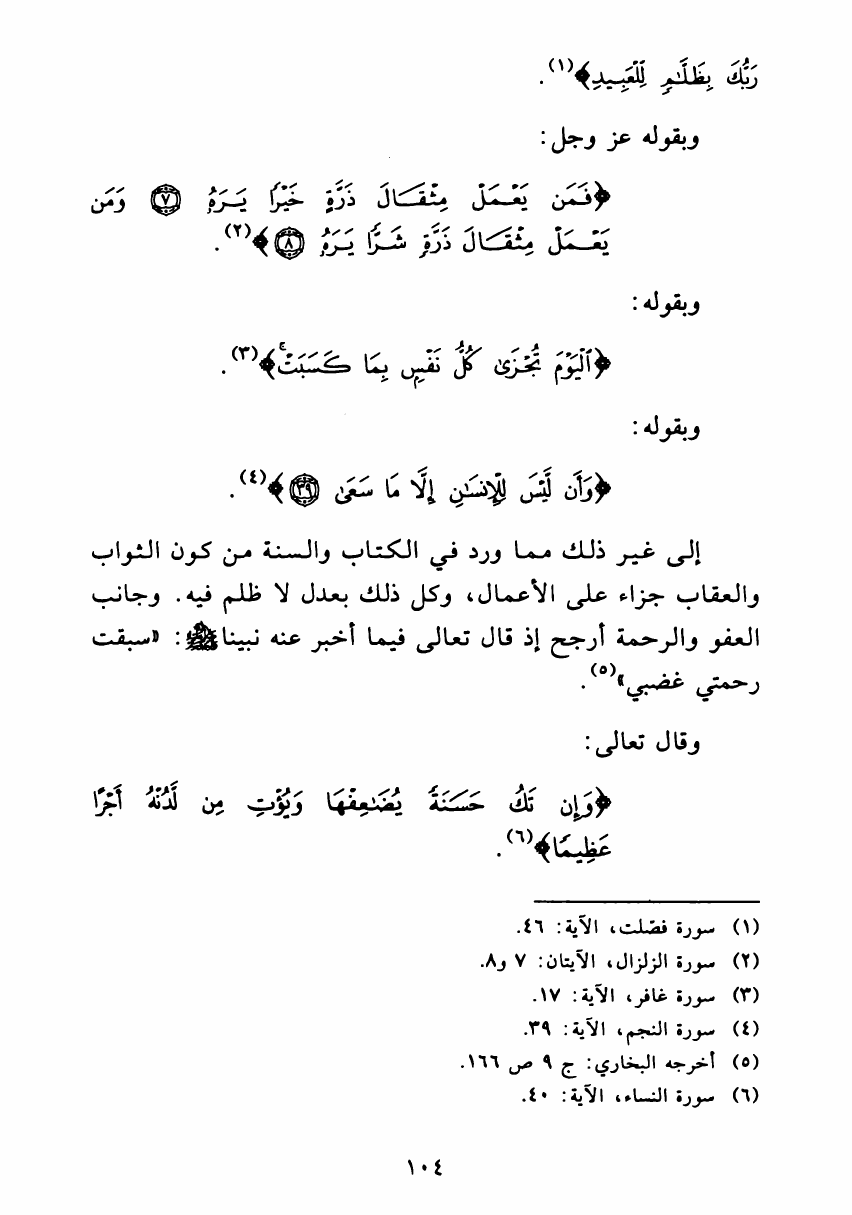 رَبُّكَ بِظَلَّٰمٍ لِّلْعَبِيدِ﴾(١).
وبقوله عز وجل:
﴿فَمَن يَعْمَلْ مِثْقَالَ ذَرَّةٍ خَيْرًا يَرَهُۥ ۝٧ وَمَن
يَعْمَلْ مِثْقَالَ ذَرَّةٍ شَرًّا يَرَهُۥ ۝٨﴾(٢).
وبقوله:
﴿ٱلْيَوْمَ تُجْزَىٰ كُلُّ نَفْسٍۭ بِمَا كَسَبَتْ ۚ﴾(٣).
وبقوله:
﴿وَأَن لَّيْسَ لِلْإِنسَٰنِ إِلَّا مَا سَعَىٰ ۝٣٩﴾(٤).
إلى غير ذلك مما ورد في الكتاب والسنة من كون الثواب
والعقاب جزاء على الأعمال، وكل ذلك بعدل لا ظلم فيه. وجانب
العفو والرحمة أرجح إذ قال تعالى فيما أخبر عنه نبينا ﷺ: «سبقت
رحمتي غضبي»(٥).
وقال تعالى:
﴿وَإِن تَكُ حَسَنَةً يُضَٰعِفْهَا وَيُؤْتِ مِن لَّدُنْهُ أَجْرًا
عَظِيمًا﴾(٦).
(١) سورة فصّلت، الآية: ٤٦.
(٢) سورة الزلزال، الآيتان: ٧ و٨.
(٣) سورة غافر، الآية: ١٧.
(٤) سورة النجم، الآية: ٣٩.
(٥) أخرجه البخاري: ج ٩ ص ١٦٦.
(٦) سورة النساء، الآية: ٤٠.
١٠٤